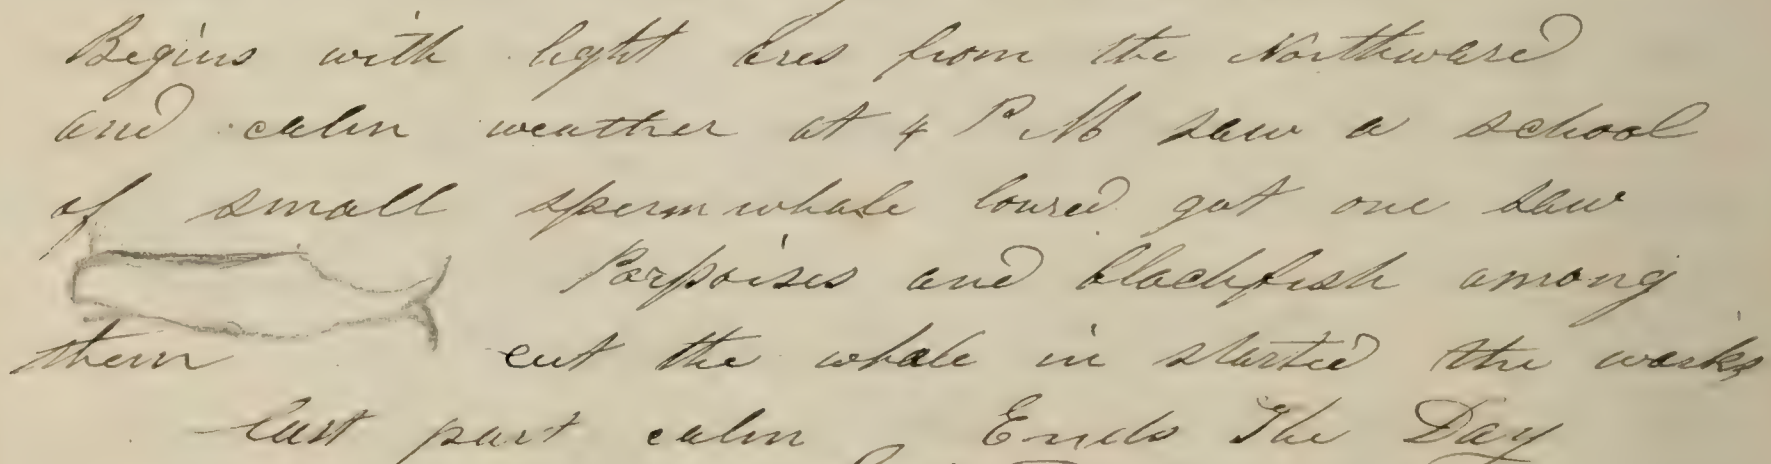 Begins with light ares from the Northward
and calm weather at 4 P M saw a school
of small sperm whale loured got one saw
Porpoises and blackfish among
them cut the whale in started the works
last part calm Ends The Day